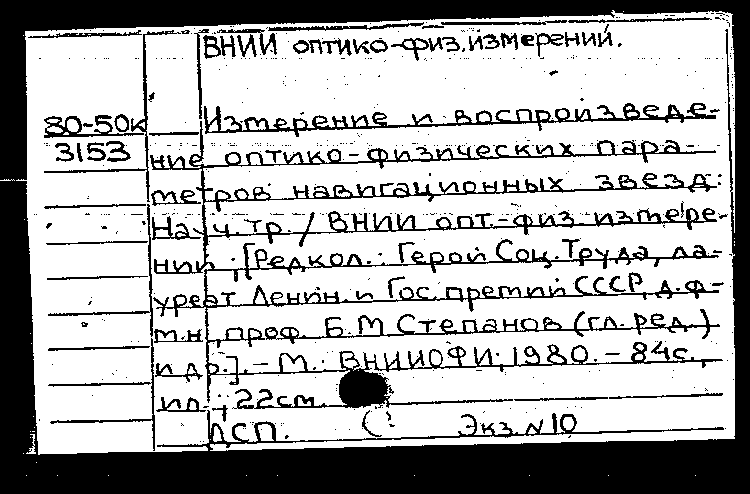 ВНИИ оптико-физ.измерений.
80-50к Измерение и воспроизведе-
3153 ние оптико-физических пара-
метров навигационных звезд:
Науч. тр. / ВНИИ опт.-физ измере-
ний ; [Редкол.: Герой Соц. Труда, ла-
уреат Ленин. и Гос. премий СССР, д. ф-
м.н., проф. Б.М Степанов (гл. ред.)
и др.]. – М.: ВНИИОФИ, 1980. – 84с.,
ил. ; 22см.
ДСП. Экз. N 10